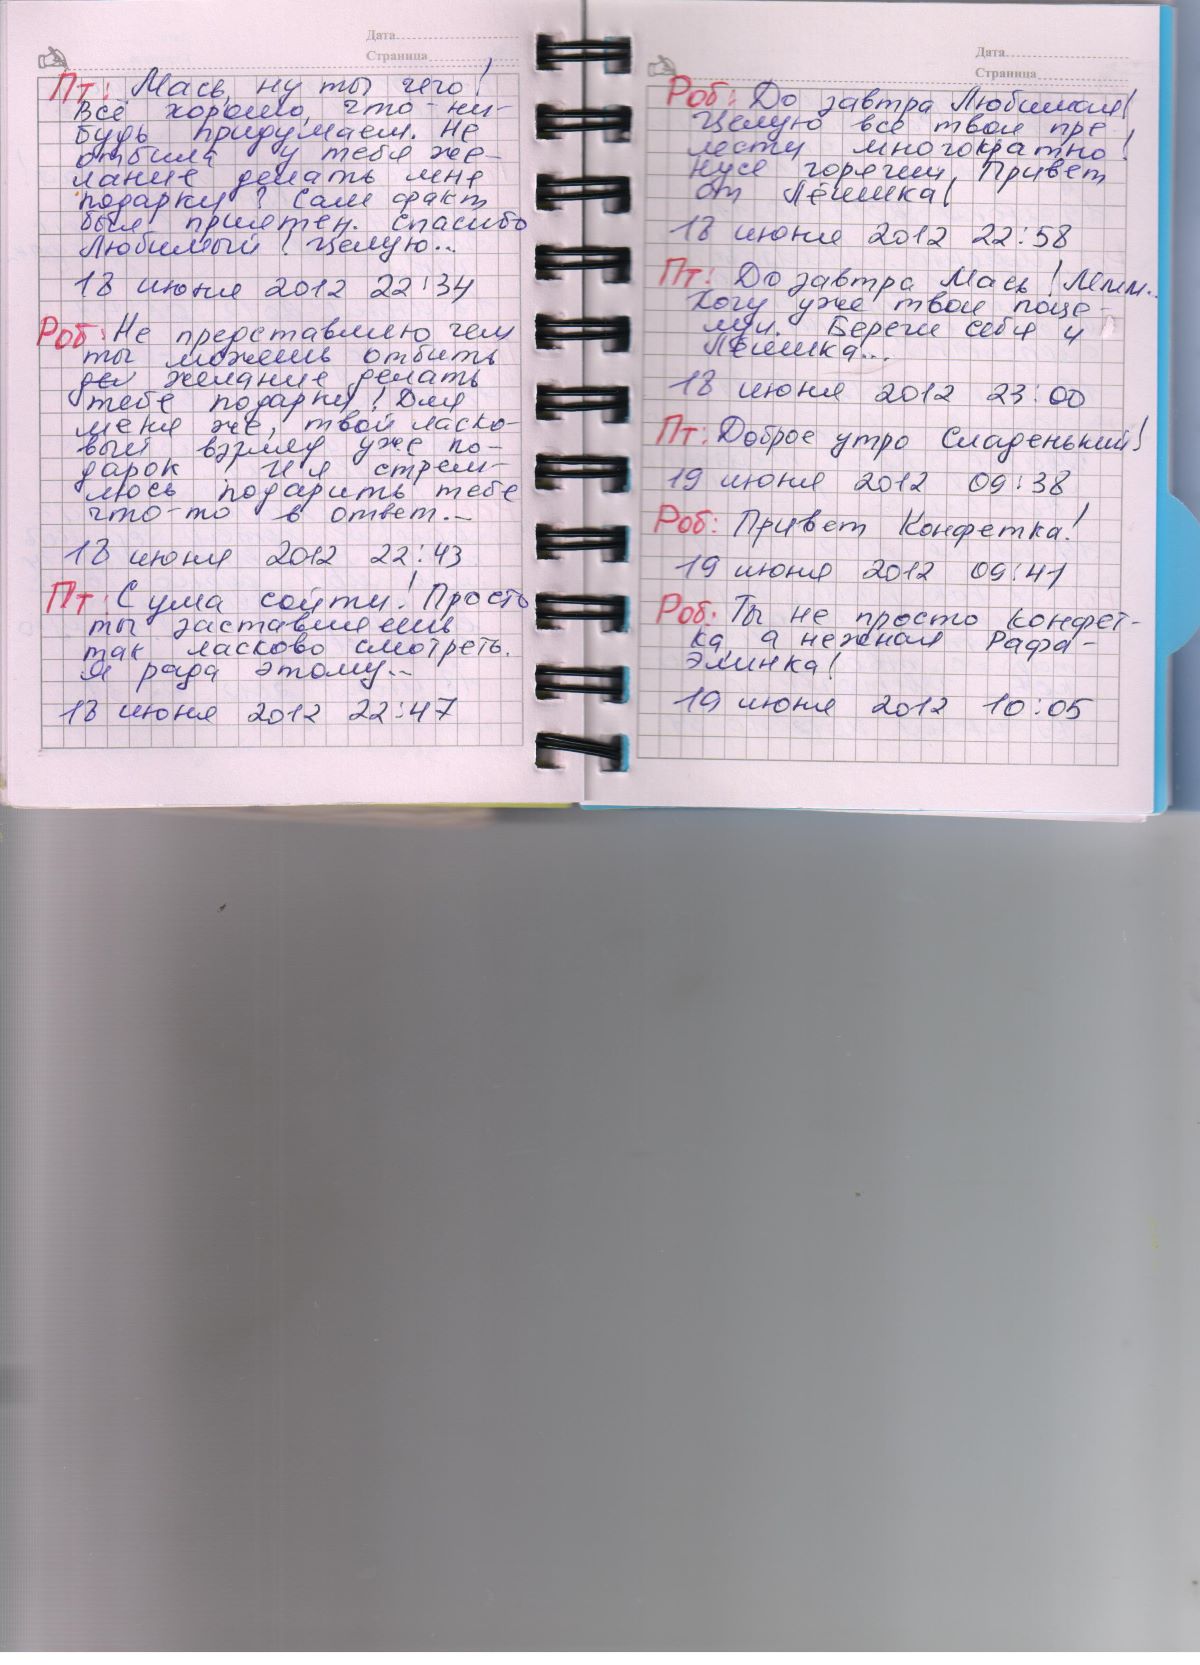 Дата
Страница
Пт: Мась, ну ты чего!
Всё хорошо, что-ни-
будь придумаем. Не
отбила у тебя же-
лание делать мне
подарки? Сам факт
был приятен. Спасибо
Любимый! Целую...
18 июня 2012 22:34
Роб: Не представляю чем
ты можешь отбить
желание делать
тебе подарки! Для
меня же, твой ласко-
вый взгляд уже по-
дарок и я стрем-
люсь подарить тебе
что-то в ответ...
18 июня 2012 22:43
Пт: С ума сойти! Просто
ты заставляешь
так ласково смотреть.
Я рада этому...
18 июня 2012 22:47
Дата
Страница
Роб: До завтра Любимая!
Целую все твои пре-
лести многократно!
горячий Привет
от Лёшика!
18 июня 2012 22:58
Пт: До завтра Мась!
Хочу уже твои поце-
луи. Береги себя и
Лёшика...
18 июня 2012 23:00
Пт: Доброе утро Сладенький!
19 июня 2012 09:38
Роб: Привет Конфетка!
19 июня 2012 09:41
Роб: Ты не просто конфет-
ка, а нежная Рафа-
элинка!
19 июня 2012 10:05